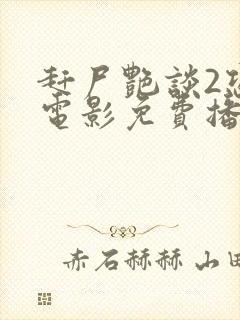 赶尸艷談2恐
電影免費播
赤石赫赫 山田